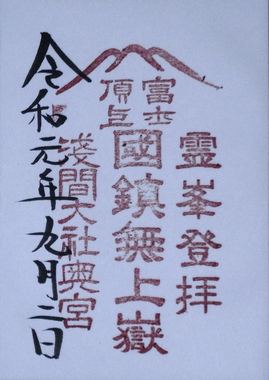 富士
頂上
霊峯登拝
國鎮無上嶽
淺間大社奥宮
令和元年九月二日